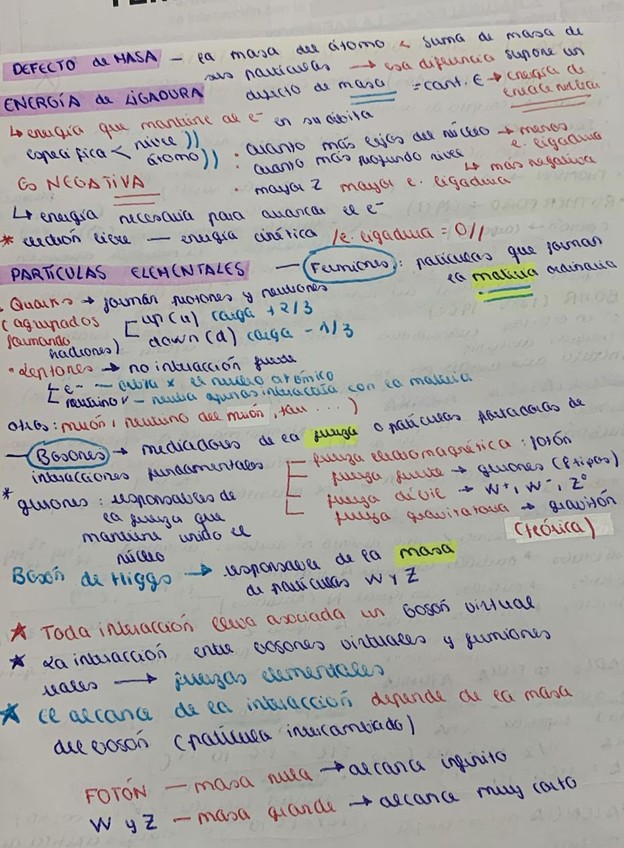 DEFECTO de MASA – la masa del átomo < suma de masa de
sus partículas → esa diferencia supone un
defecto de masa = cant. E → energía de
enlace nuclear
ENERGÍA de LIGADURA
↳ energía que mantiene al e⁻ en su órbita
específica < nivel ))
átomo )) : cuanto más lejos del núcleo → menos
e. ligadura
cuanto más profundo nivel
↳ más negativa
Es NEGATIVA · mayor Z mayor e. ligadura
↳ energía necesaria para arrancar el e⁻
* electrón libre — energía cinética /e. ligadura = 0//
PARTÍCULAS ELEMENTALES — Fermiones : partículas que forman
la materia ordinaria
· Quarks → forman protones y neutrones
(agrupados [ up (u) carga + 2/3
formando
hadrones) down (d) carga - 1/3
· Leptones → no interacción fuerte
[ e⁻ — orbita x el núcleo atómico
neutrino ν – neutra apenas interacciona con la materia
otros : muón, neutrino del muón, tau ... )
— Bosones → mediadores de la fuerza o partículas portadoras de
interacciones fundamentales
fuerza electromagnética : fotón
fuerza fuerte → gluones (8 tipos)
fuerza débil → W⁺, W⁻, Z⁰
fuerza gravitatoria → gravitón
(teórica)
* gluones : responsables de
la fuerza que
mantiene unido el
núcleo
Bosón de Higgs → responsable de la masa
de partículas W y Z
★ Toda interacción lleva asociada un bosón virtual
★ La interacción entre bosones virtuales y fermiones
reales → fuerzas elementales
★ el alcance de la interacción depende de la masa
del bosón (partícula intercambiada)
FOTÓN — masa nula → alcance infinito
W y Z — masa grande → alcance muy corto